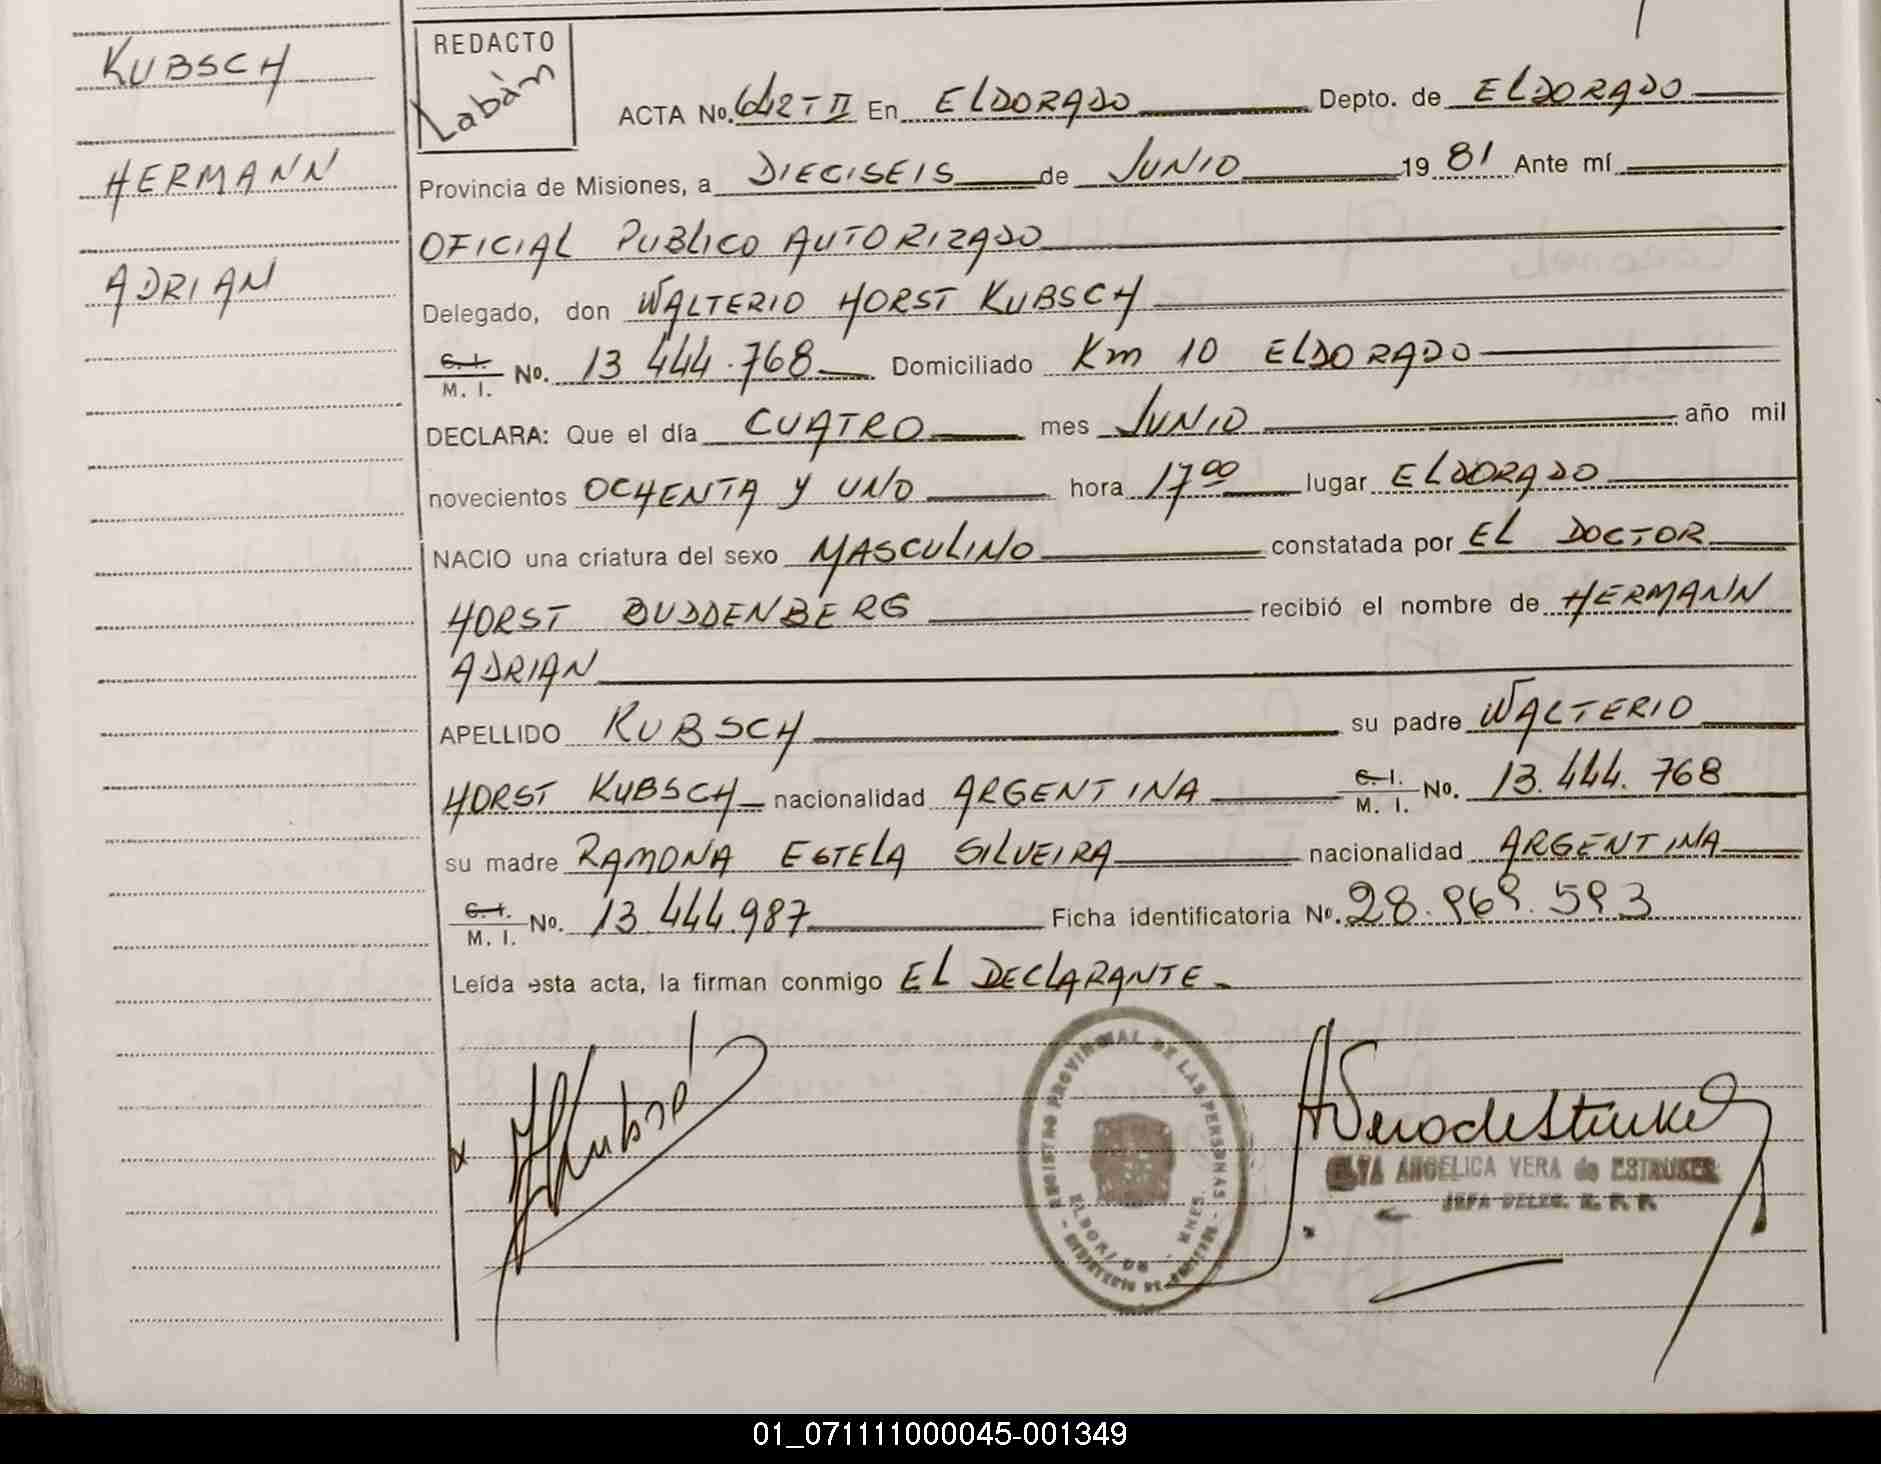 KUBSCH
HERMANN
ADRIAN
REDACTO
Labán
ACTA No. 642 T II En ELDORADO Depto. de ELDORADO
Provincia de Misiones, a DIECISEIS de JUNIO 19 81 Ante mí
OFICIAL PUBLICO AUTORIZADO
Delegado, don WALTERIO HORST KUBSCH
C. I. / M. I. No. 13 444.768 Domiciliado Km 10 ELDORADO
DECLARA: Que el día CUATRO mes JUNIO año mil
novecientos OCHENTA Y UNO hora 17 00 lugar ELDORADO
NACIO una criatura del sexo MASCULINO constatada por EL DOCTOR
HORST BUDDENBERG recibió el nombre de HERMANN
ADRIAN
APELLIDO KUBSCH su padre WALTERIO
HORST KUBSCH nacionalidad ARGENTINA C. I. / M. I. No. 13.444.768
su madre RAMONA ESTELA SILVEIRA nacionalidad ARGENTINA
C. I. / M. I. No. 13.444.987 Ficha identificatoria No. 28.969.593
Leída esta acta, la firman conmigo EL DECLARANTE.
REGISTRO PROVINCIAL DE LAS PERSONAS
ANGELICA VERA de ESTRUKER
JEFA DELEG. R. P. P.
01_071111000045-001349